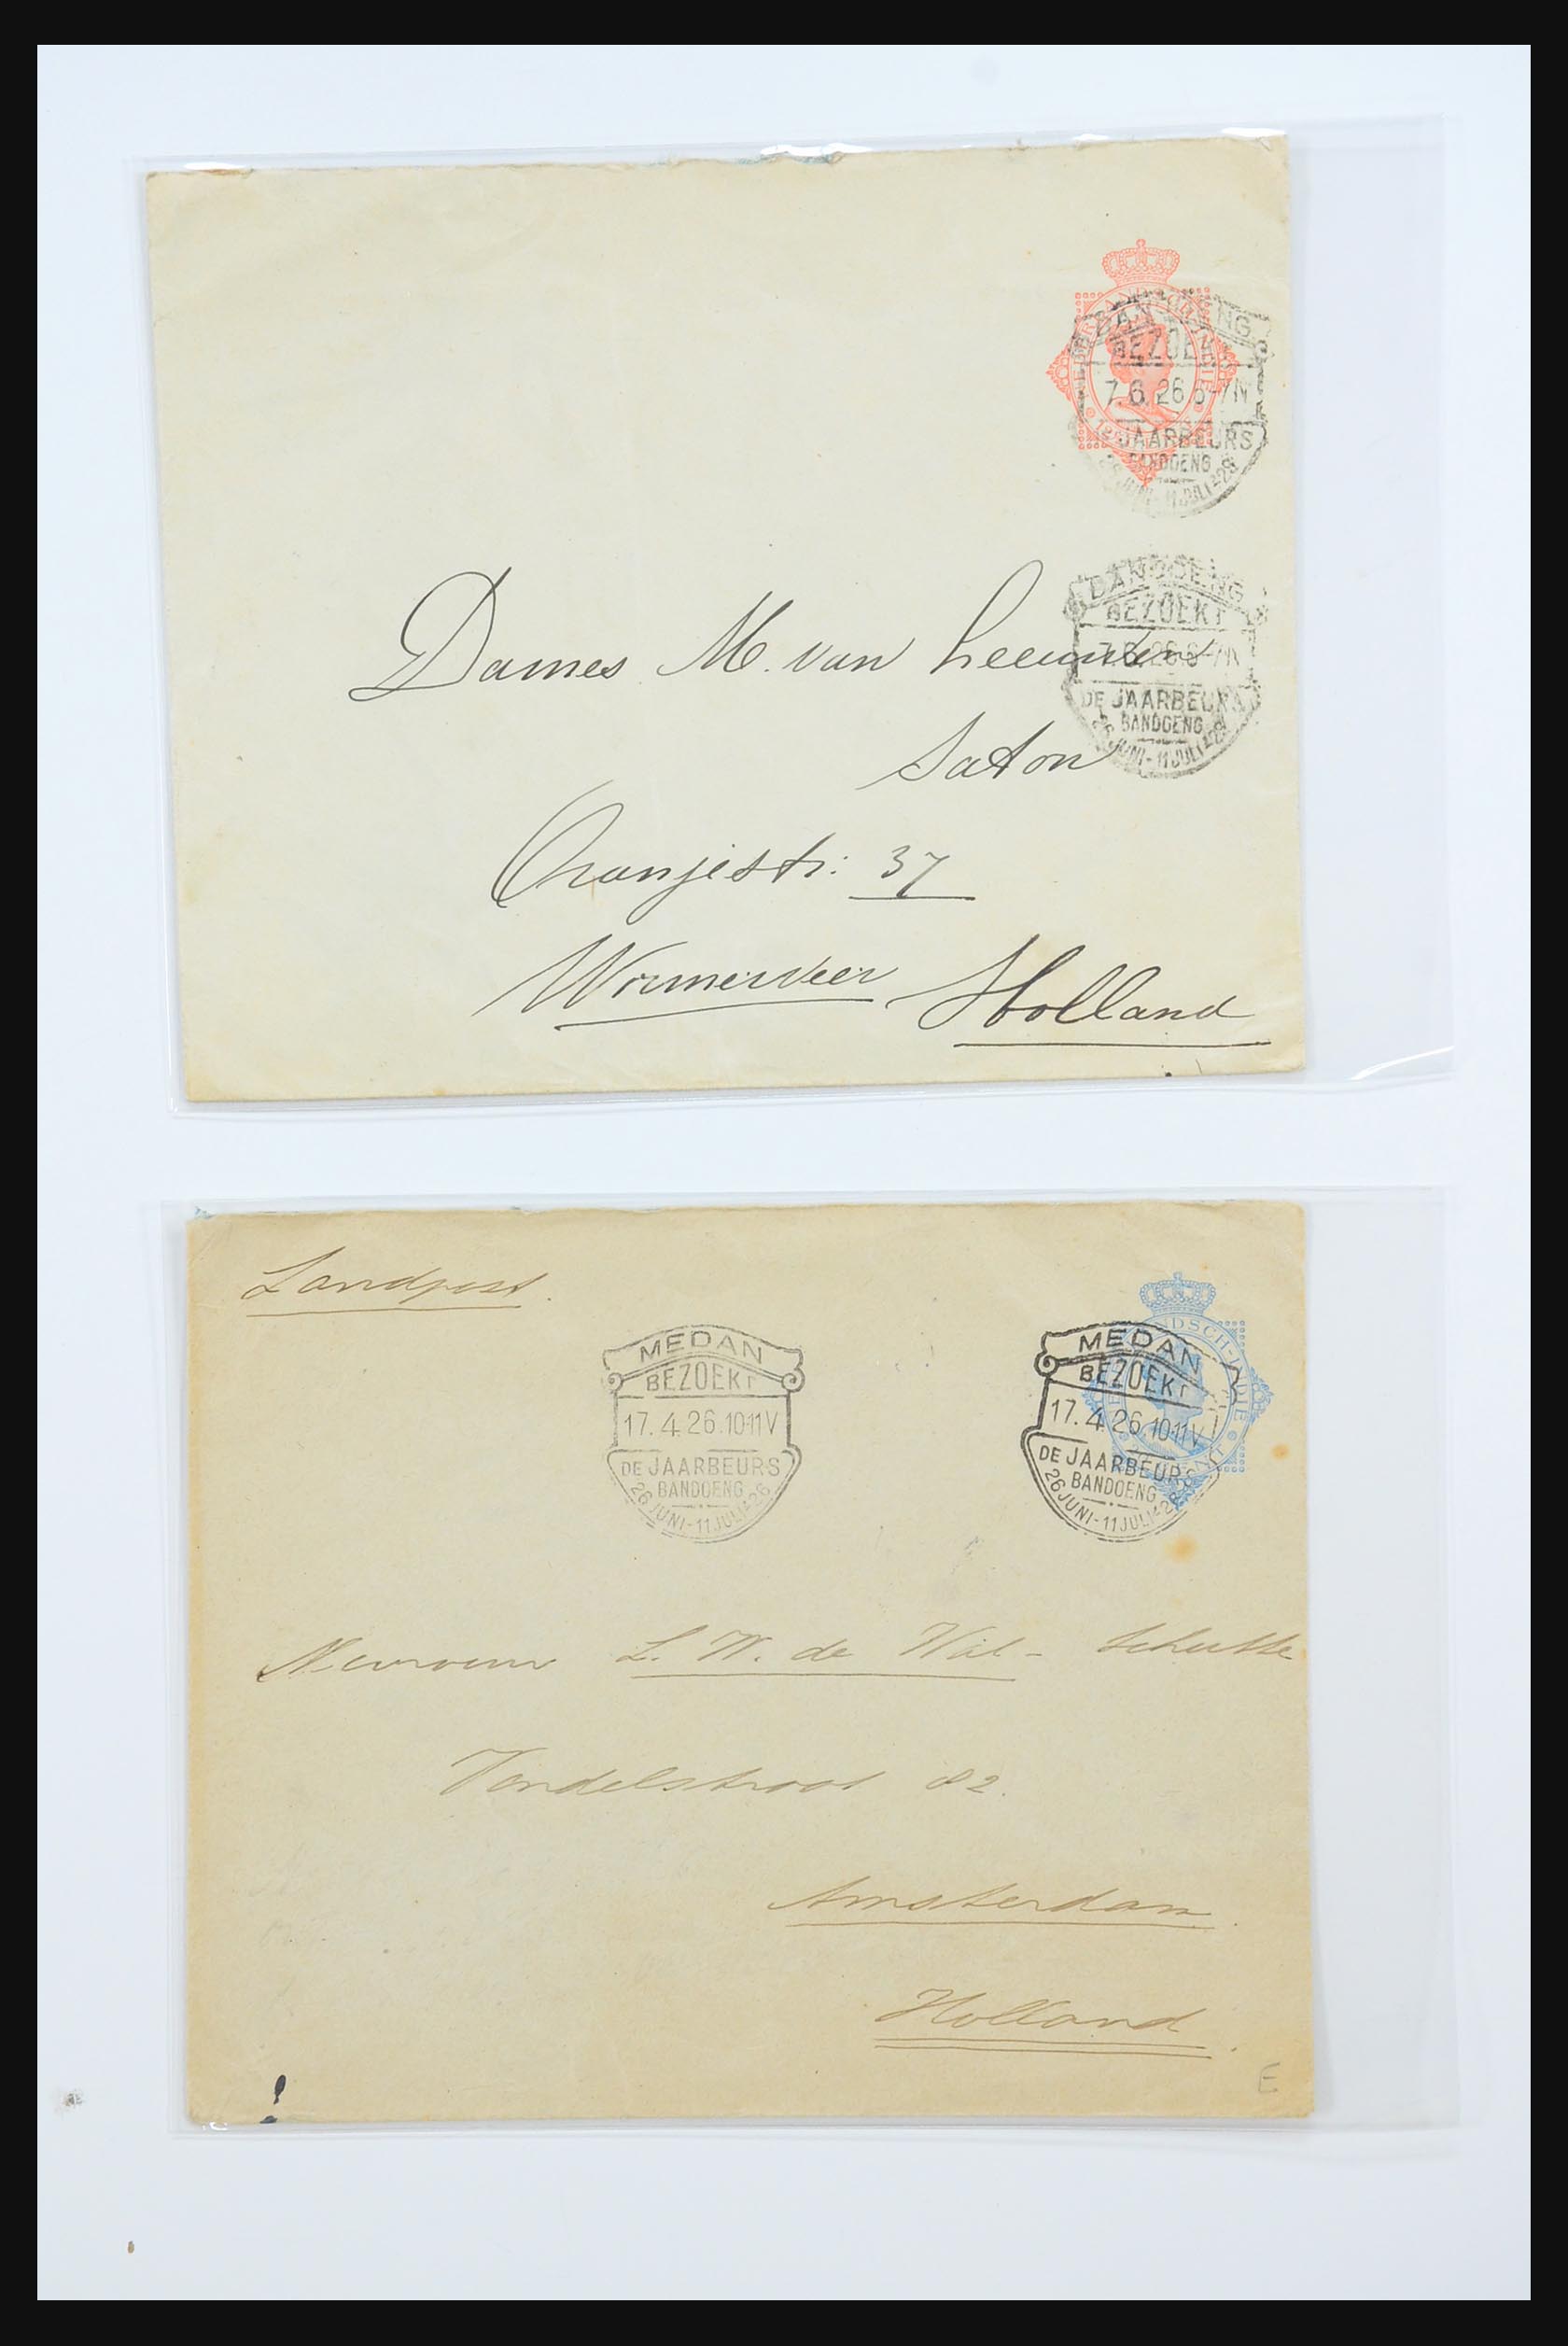 BANDOENG
BEZOEKT
7.6.26
JAARBEURS
BANDOENG
26 JUNI - 11 JULI
BANDOENG
BEZOEKT
7.6.26
DE JAARBEURS
BANDOENG
26 JUNI - 11 JULI
Dames M. van Leeuwen
Saton
Oranjestr: 37
Wormerveer Holland
Landpost.
MEDAN
BEZOEKT
17.4.26.10-11V
DE JAARBEURS
BANDOENG
26 JUNI - 11 JULI 26
NEDERLANDSCH-INDIE
MEDAN
BEZOEKT
17.4.26.10-11V
DE JAARBEURS
BANDOENG
26 JUNI - 11 JULI 26
Mevrouw L. W. de Wal - Schutte
Vondelstraat 82.
Amsterdam.
Holland.
E